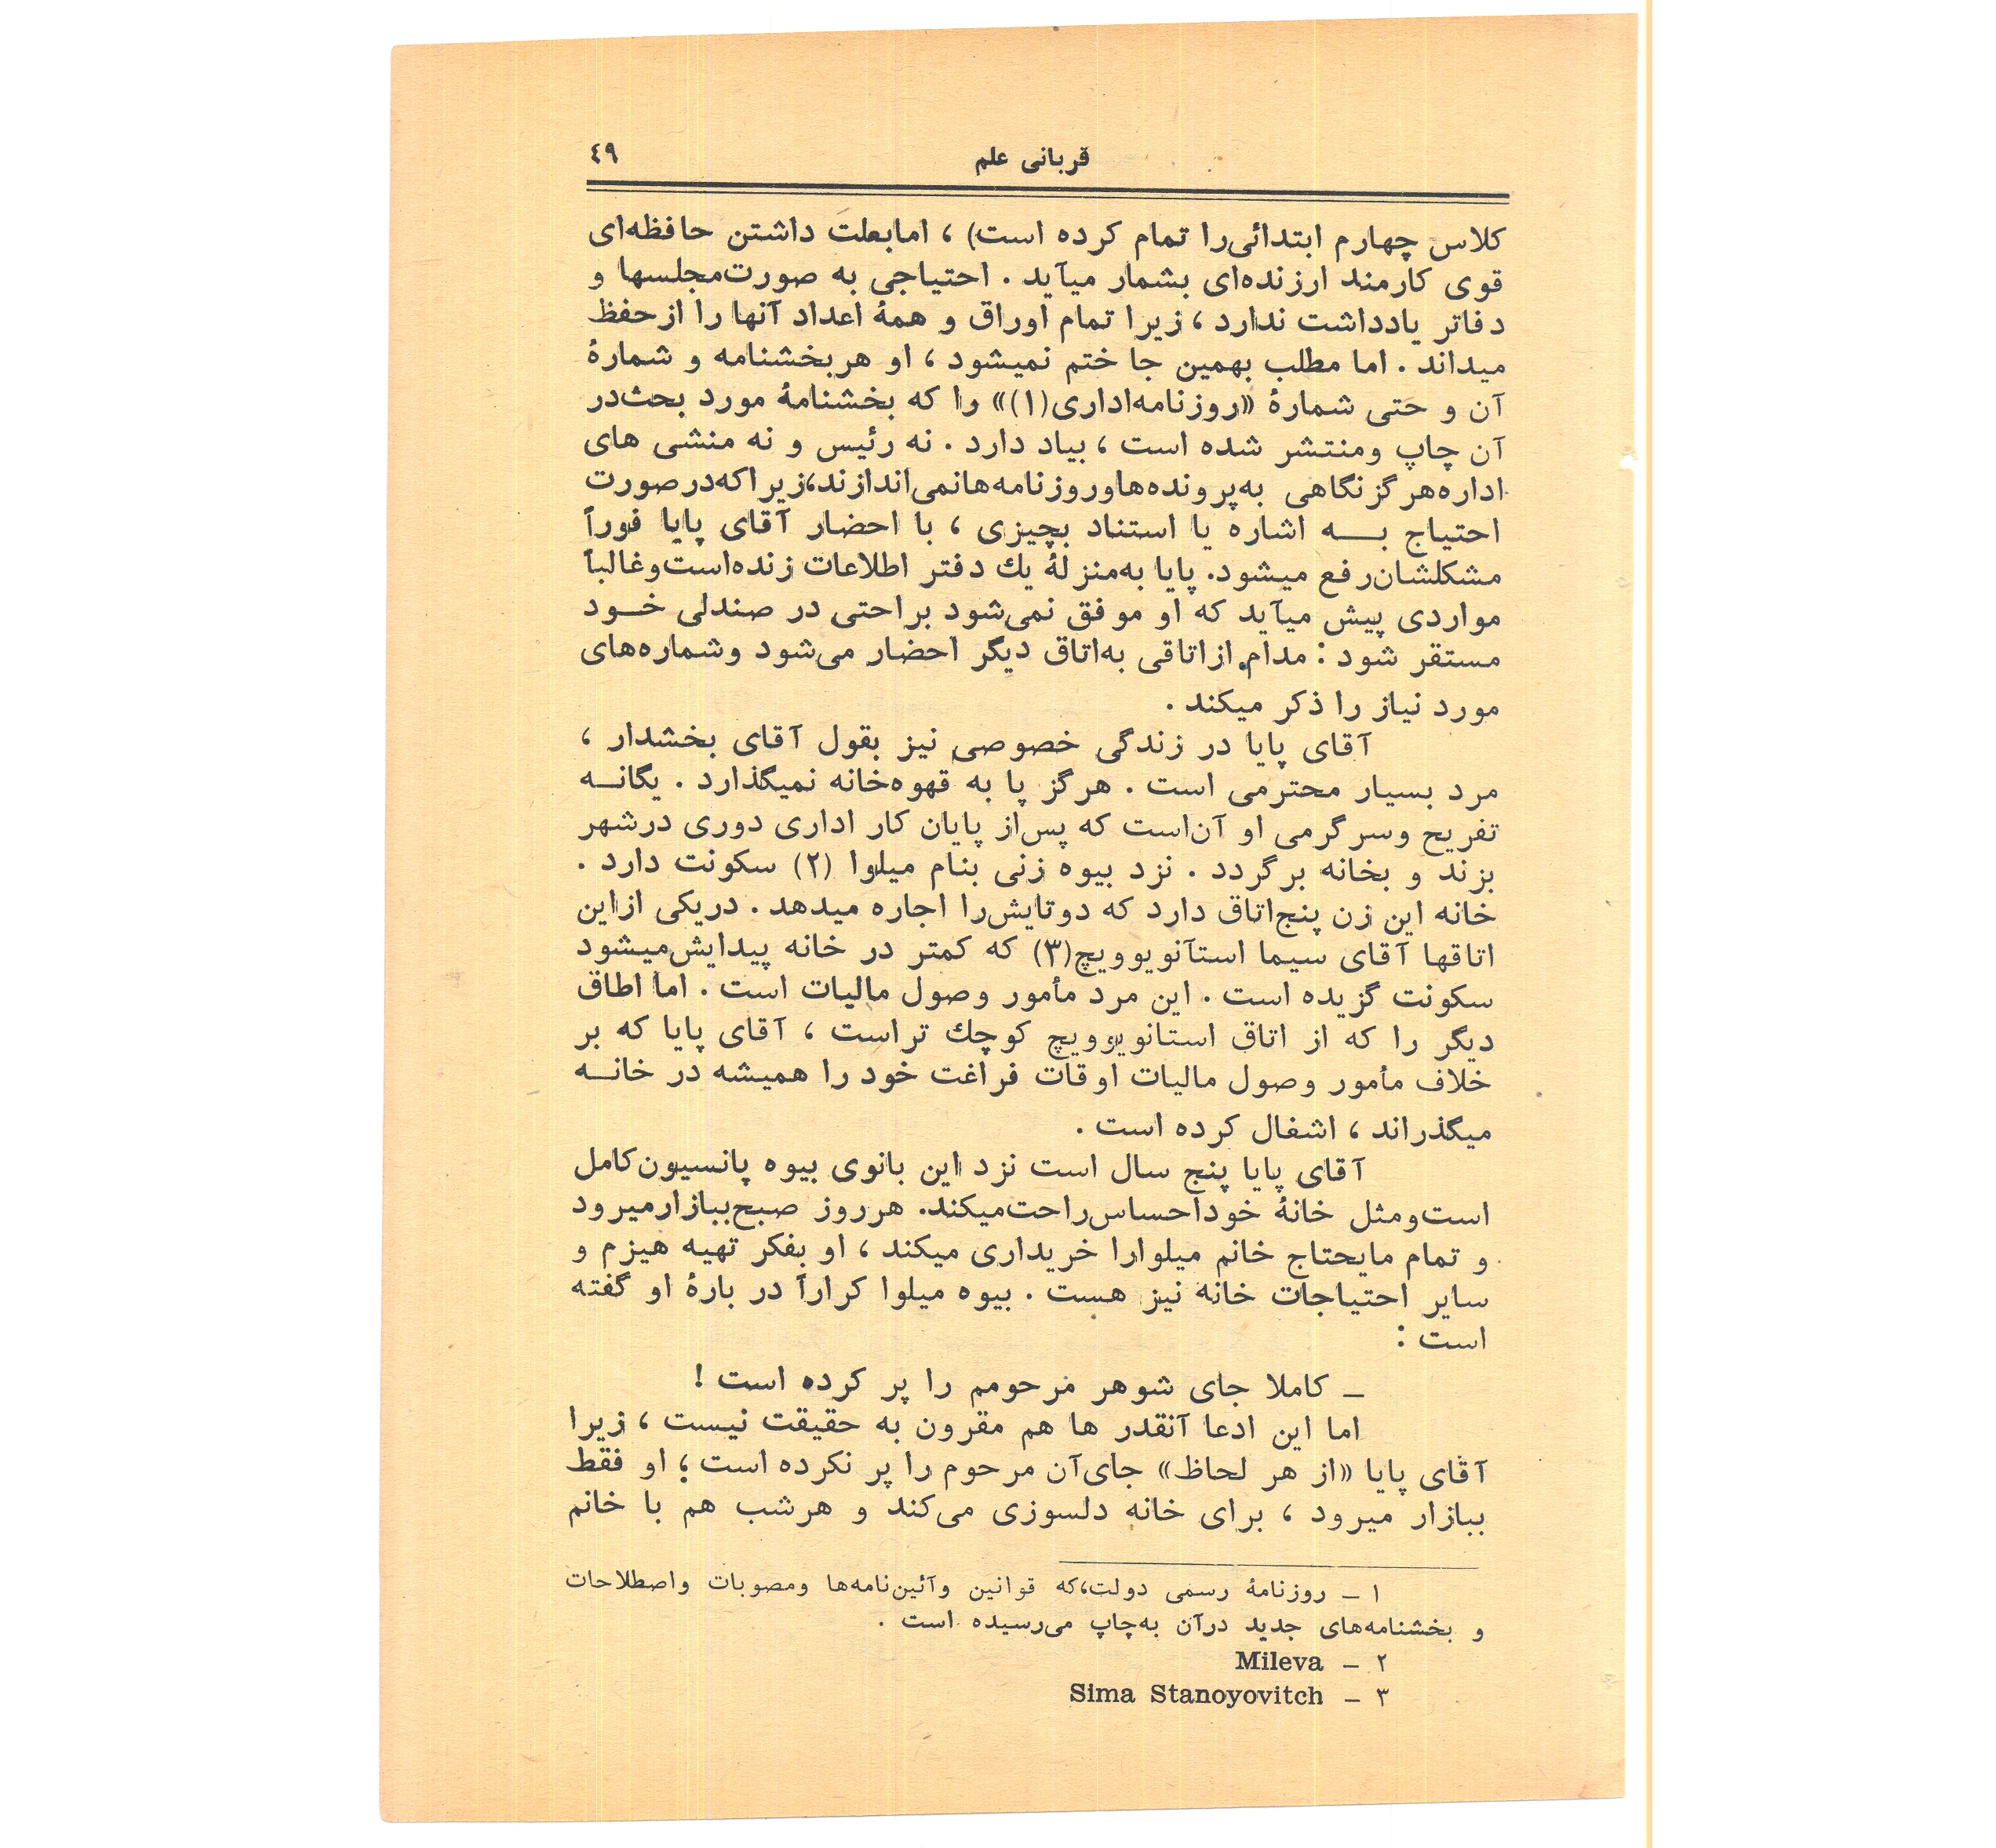 قربانی علم ٤٩
کلاس چهارم ابتدائی‌را تمام کرده است) ، امابعلت داشتن حافظه‌ای
قوی کارمند ارزنده‌ای بشمار میآید . احتیاجی به صورت‌مجلسها و
دفاتر یادداشت ندارد ، زیرا تمام اوراق و همهٔ اعداد آنها را ازحفظ
میداند . اما مطلب بهمین جا ختم نمیشود ، او هربخشنامه و شمارهٔ
آن و حتی شمارهٔ «روزنامه‌اداری(۱)» را که بخشنامهٔ مورد بحث‌در
آن چاپ ومنتشر شده است ، بیاد دارد . نه رئیس و نه منشی های
اداره‌هرگزنگاهی به‌پرونده‌هاوروزنامه‌هانمی‌اندازند،زیراکه‌درصورت
احتیاج بـه اشاره یا استناد بچیزی ، با احضار آقای پایا فوراً
مشکلشان‌رفع میشود. پایا به‌منزلهٔ یك دفتر اطلاعات زنده‌است‌وغالباً
مواردی پیش میآید که او موفق نمی‌شود براحتی در صندلی خـود
مستقر شود : مدام ازاتاقی به‌اتاق دیگر احضار می‌شود وشماره‌های
مورد نیاز را ذکر میکند .
آقای پایا در زندگی خصوصی نیز بقول آقای بخشدار ،
مرد بسیار محترمی است . هرگز پا به قهوه‌خانه نمیگذارد . یگانـه
تفریح وسرگرمی او آن‌است که پس‌از پایان کار اداری دوری درشهر
بزند و بخانه برگردد . نزد بیوه زنی بنام میلوا (۲) سکونت دارد .
خانه این زن پنج‌اتاق دارد که دوتایش‌را اجاره میدهد . دریکی ازاین
اتاقها آقای سیما استآنویوویچ(۳) که کمتر در خانه پیدایش‌میشود
سکونت گزیده است . این مرد مأمور وصول مالیات است . اما اطاق
دیگر را که از اتاق استانویوویچ کوچك تراست ، آقای پایا که بر
خلاف مأمور وصول مالیات اوقات فراغت خود را همیشه در خانـه
میگذراند ، اشغال کرده است .
آقای پایا پنج سال است نزد این بانوی بیوه پانسیون‌کامل
است‌ومثل خانهٔ خوداحساس‌راحت‌میکند. هرروز صبح‌ببازارمیرود
و تمام مایحتاج خانم میلوارا خریداری میکند ، او بفکر تهیه هیزم و
سایر احتیاجات خانه نیز هست . بیوه میلوا کراراً در بارهٔ او گفته
است :
ـ کاملا جای شوهر مرحومم را پر کرده است !
اما این ادعا آنقدر ها هم مقرون به حقیقت نیست ، زیرا
آقای پایا «از هر لحاظ» جای‌آن مرحوم را پر نکرده است ؛ او فقط
ببازار میرود ، برای خانه دلسوزی می‌کند و هرشب هم با خانم
۱ ـ روزنامهٔ رسمی دولت،که قوانین وآئین‌نامه‌ها ومصوبات واصطلاحات
و بخشنامه‌های جدید درآن به‌چاپ می‌رسیده است .
۲ ـ Mileva
۳ ـ Sima Stanoyovitch